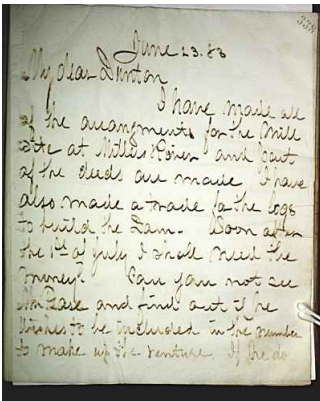 338
June 23. 83
My dear Dunton
I have made all
of the arrangments for the Mill
site at Millers River and part
of the deeds are made I have
also made a trade for the logs
to build the Dam. Soon after
the 1st of July I shall need the
money. Can you not see
and find out if he
wishes to be included in the number
to make up the venture. If he do